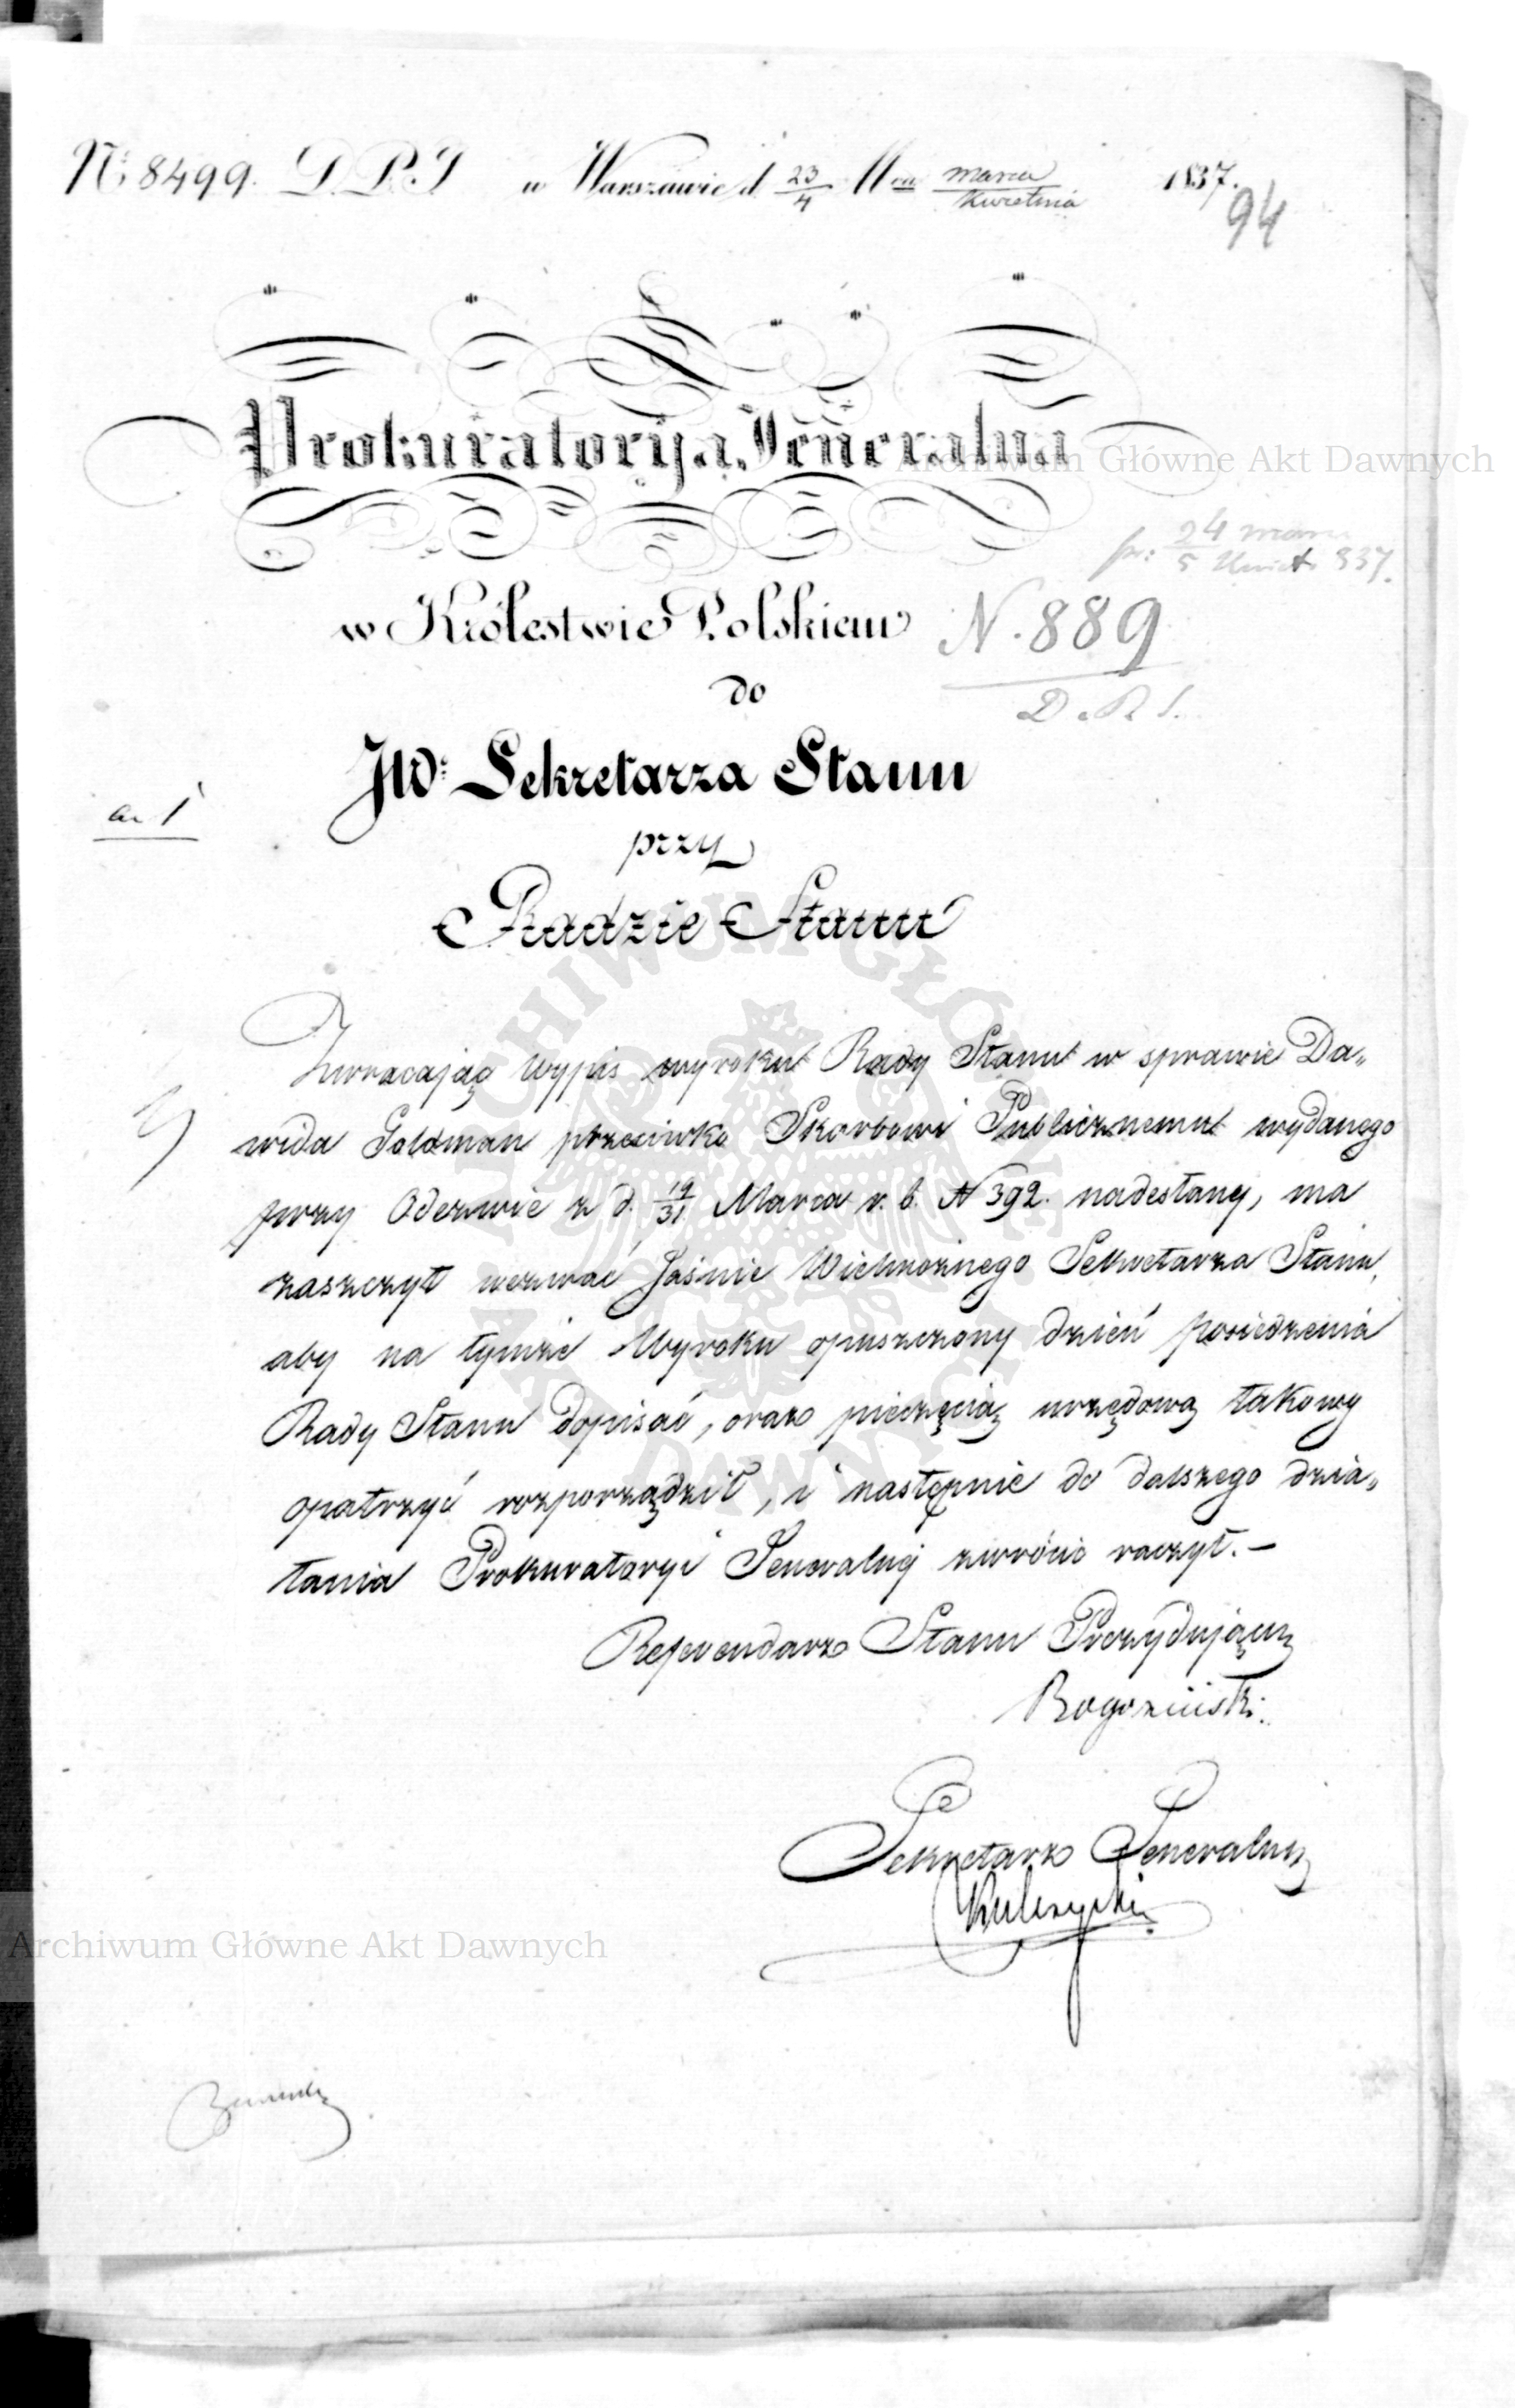 Nº 8499. D. P. J w Warszawie d 23/4 Mca marca/Kwietnia 1837.
94
Prokuratorya Jeneralna
Archiwum Główne Akt Dawnych
pr: 24 marca/5 Kwiet 837.
w Królestwie Polskiem
N. 889
do
D. R. S.
JW. Sekretarza Stanu
a. 1
przy
Radzie Stanu
Zwracając Wypis wyroku Rady Stanu w sprawie Da„
wida Goldman przeciwko Skarbowi Publicznemu wydanego
przy Odezwie z d. 19/31 Marca r. b. N 392. nadesłany, ma
zaszczyt wezwać Jaśnie Wielmożnego Sekretarza Stanu,
aby na tymże Wyroku opuszczony dzień posiedzenia
Rady Stanu dopisać, oraz pieczęcią urzędową takowy
opatrzyć rozporządził, i następnie do dalszego dzia„
łania Prokuratoryi Jeneralnej zwrócić raczył. —
Referendarz Stanu Prezydujący
Rogoziński.
Sekretarz Jeneralny
Kulczycki
Archiwum Główne Akt Dawnych
ARCHIWUM GŁÓWNE AKT DAWNYCH